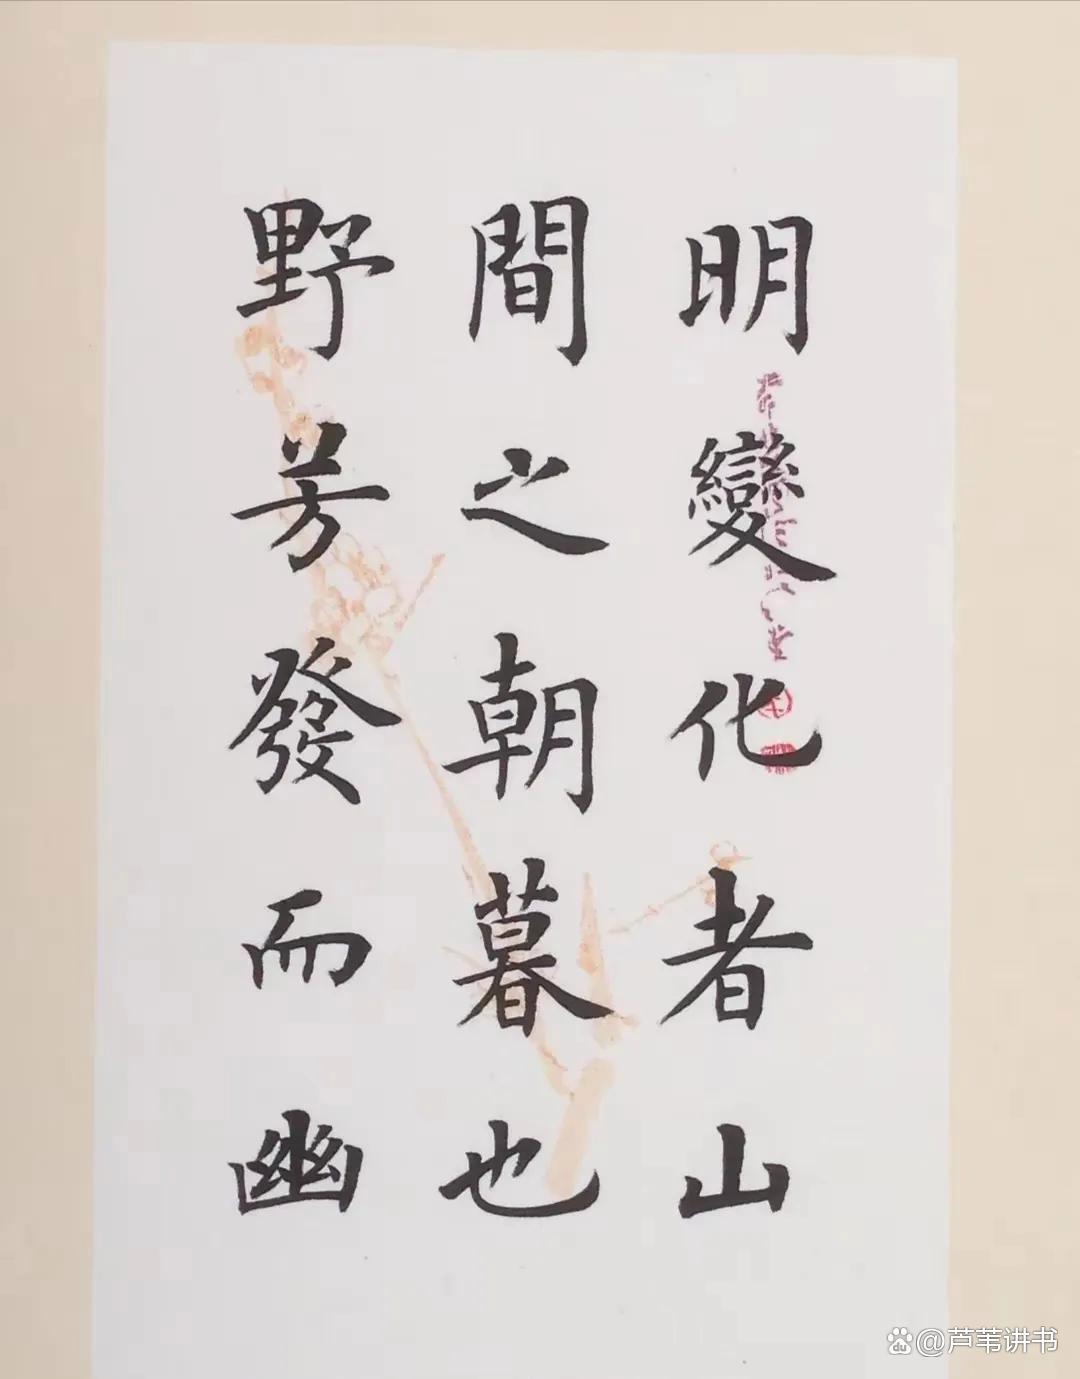 明變化者山
間之朝暮也
野芳發而幽
@芦苇讲书